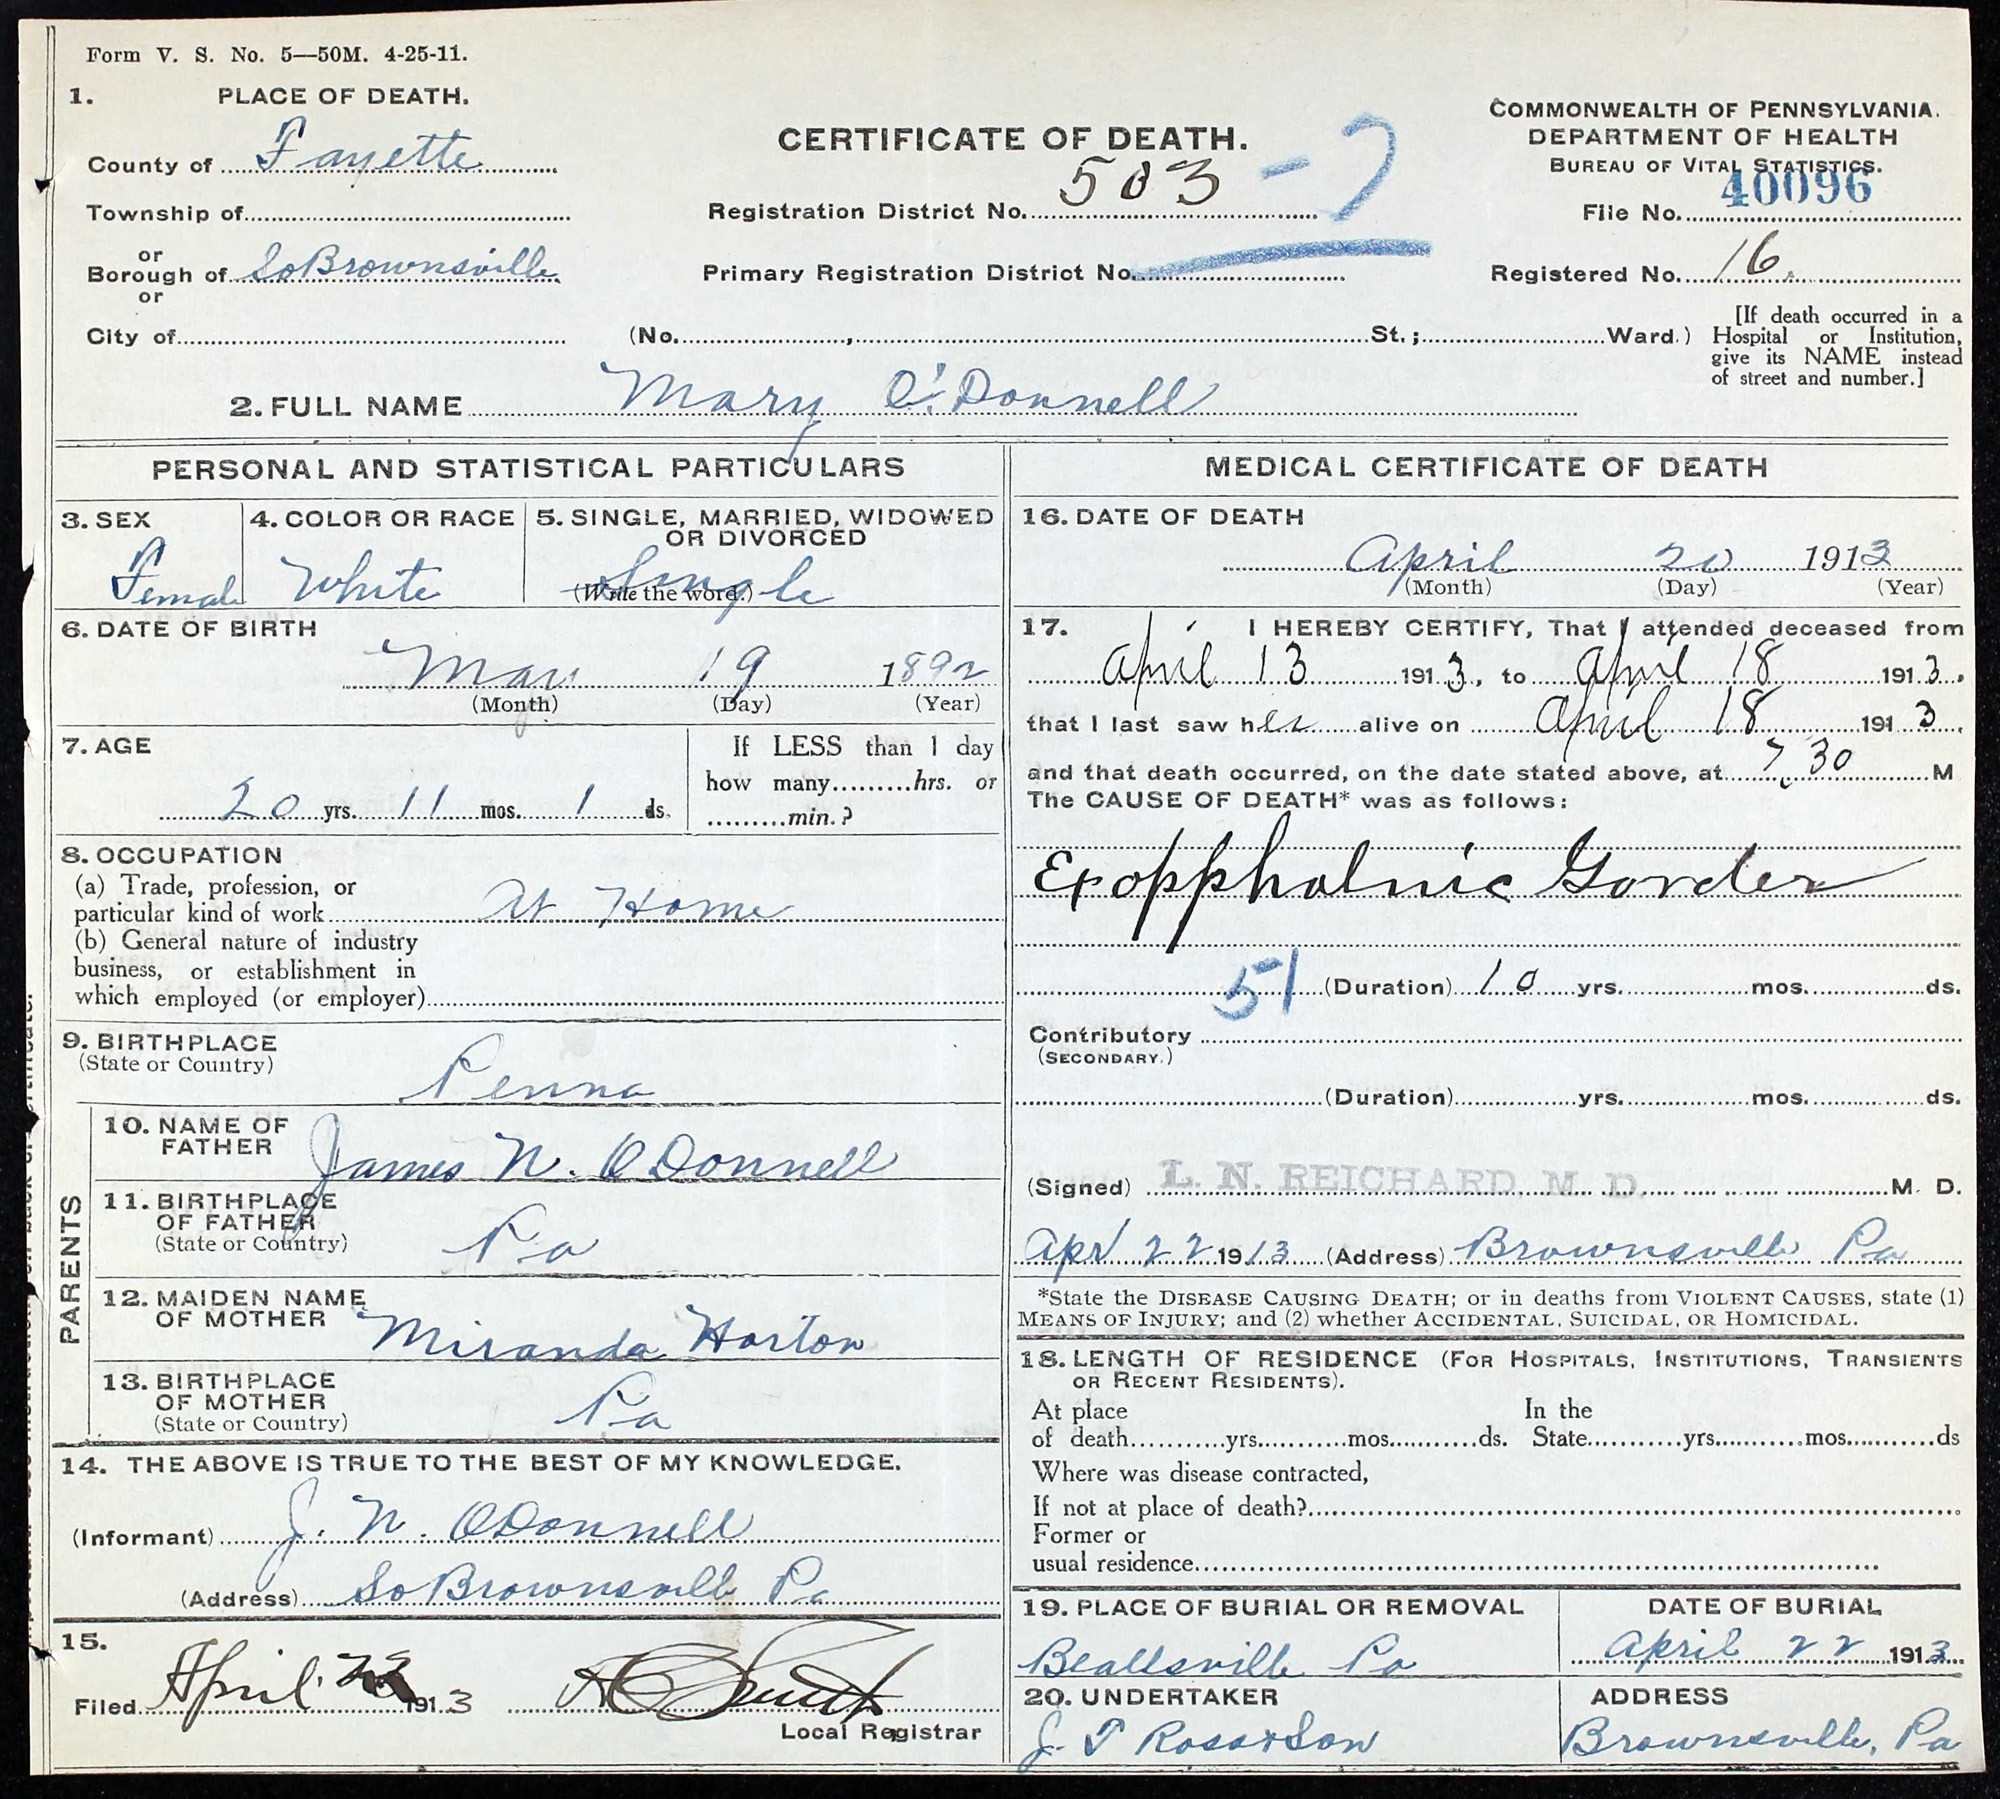 Form V. S. No. 5—50M. 4-25-11.
1. PLACE OF DEATH.
County of Fayette
Township of
or
Borough of So Brownsville
or
City of
CERTIFICATE OF DEATH.
Registration District No. 503 - 7
Primary Registration District No.
(No. , St.; Ward.)
COMMONWEALTH OF PENNSYLVANIA.
DEPARTMENT OF HEALTH
BUREAU OF VITAL STATISTICS.
File No. 40096
Registered No. 16.
[If death occurred in a
Hospital or Institution,
give its NAME instead
of street and number.]
2. FULL NAME Mary O'Donnell
PERSONAL AND STATISTICAL PARTICULARS
3. SEX
Female
4. COLOR OR RACE
White
5. SINGLE, MARRIED, WIDOWED
OR DIVORCED
(Write the word.) Single
6. DATE OF BIRTH
May 19 1892
(Month) (Day) (Year)
7. AGE
20 yrs. 11 mos. 1 ds.
If LESS than 1 day
how many hrs. or
min.?
8. OCCUPATION
(a) Trade, profession, or
particular kind of work At Home
(b) General nature of industry
business, or establishment in
which employed (or employer)
9. BIRTHPLACE
(State or Country)
Penna
PARENTS
10. NAME OF
FATHER
James N. O Donnell
11. BIRTHPLACE
OF FATHER
(State or Country)
Pa
12. MAIDEN NAME
OF MOTHER
Miranda Horton
13. BIRTHPLACE
OF MOTHER
(State or Country)
Pa
14. THE ABOVE IS TRUE TO THE BEST OF MY KNOWLEDGE.
(Informant) J. N. ODonnell
(Address) So Brownsville Pa
15.
Filed April 1913
Local Registrar
MEDICAL CERTIFICATE OF DEATH
16. DATE OF DEATH
April 20 1913
(Month) (Day) (Year)
17. I HEREBY CERTIFY, That I attended deceased from
April 13 1913, to April 18 1913,
that I last saw her alive on April 18 1913,
and that death occurred, on the date stated above, at 7 30 M
The CAUSE OF DEATH* was as follows:
Exoppholmic Gorder
51 (Duration) 10 yrs. mos. ds.
Contributory
(SECONDARY.)
(Duration) yrs. mos. ds.
(Signed) L. N. REICHARD, M. D. M. D.
Apr 22 1913 (Address) Brownsville Pa
*State the DISEASE CAUSING DEATH; or in deaths from VIOLENT CAUSES, state (1)
MEANS OF INJURY; and (2) whether ACCIDENTAL, SUICIDAL, OR HOMICIDAL.
18. LENGTH OF RESIDENCE (FOR HOSPITALS, INSTITUTIONS, TRANSIENTS
OR RECENT RESIDENTS).
At place In the
of death yrs. mos. ds. State yrs. mos. ds
Where was disease contracted,
If not at place of death?
Former or
usual residence
19. PLACE OF BURIAL OR REMOVAL
Beallsville Pa
DATE OF BURIAL
April 22 1913
20. UNDERTAKER
J. T Ross & Son
ADDRESS
Brownsville, Pa